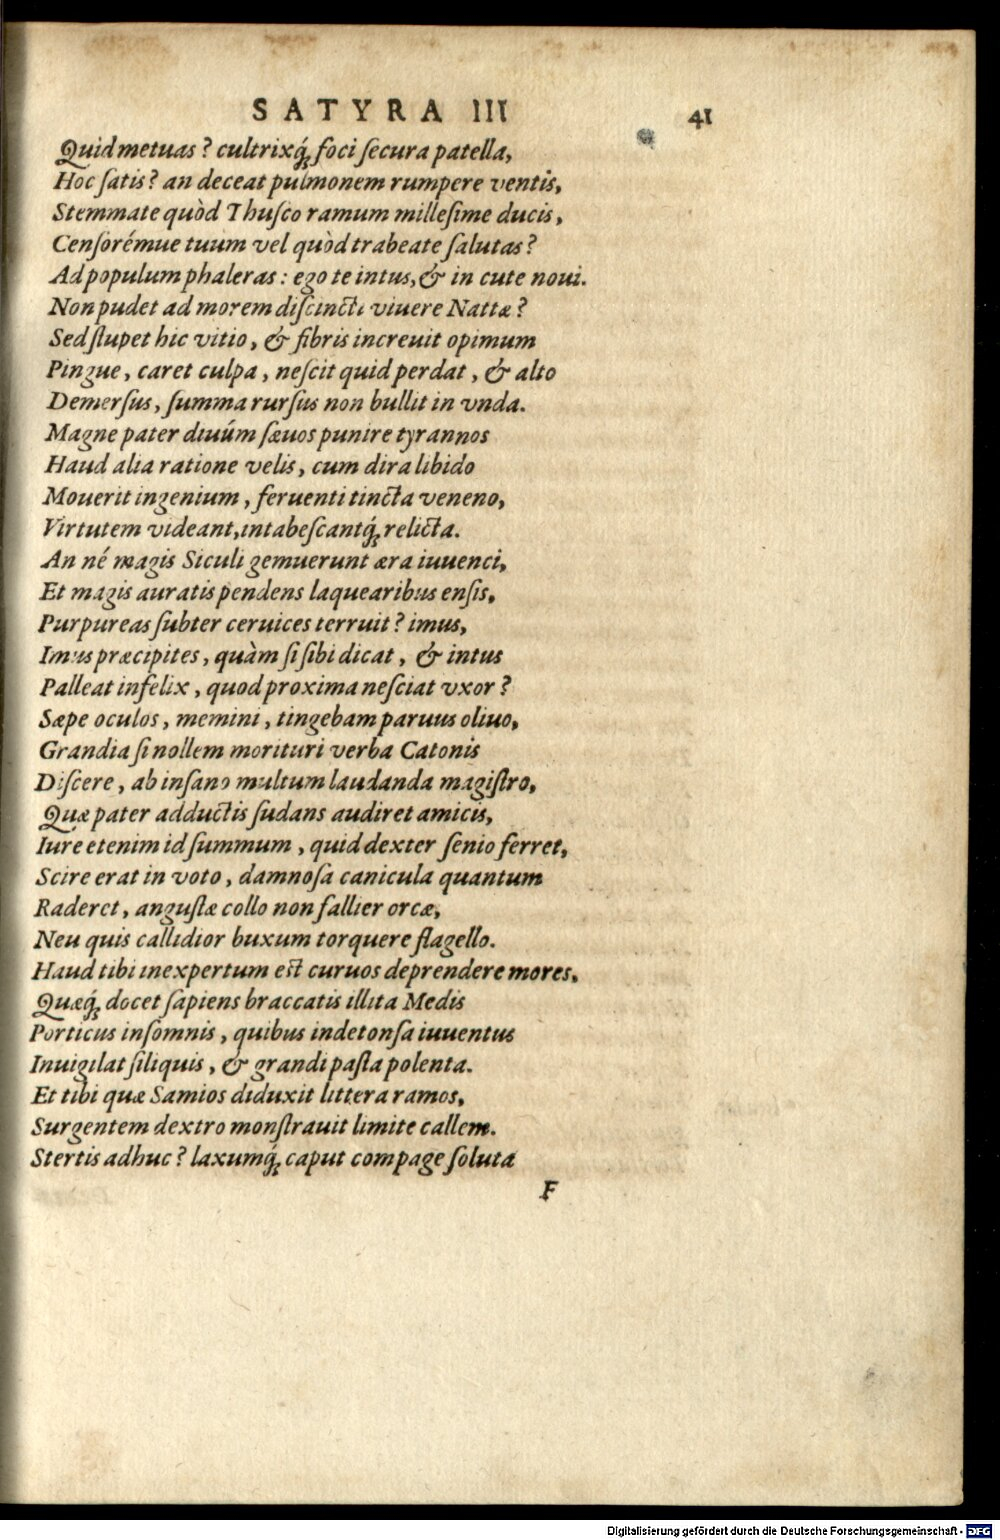 SATYRA III 41
Quid metuas? cultrixq́ꝫ foci ſecura patella,
Hoc ſatis? an deceat pulmonem rumpere ventis,
Stemmate quòd Thuſco ramum milleſime ducis,
Cenſorémue tuum vel quòd trabeate ſalutas?
Ad populum phaleras: ego te intus, & in cute noui.
Non pudet ad morem diſcincti viuere Nattæ?
Sed ſtupet hic vitio, & fibris increuit opimum
Pingue, caret culpa, neſcit quid perdat, & alto
Demerſus, ſumma rurſus non bullit in vnda.
Magne pater diuúm ſæuos punire tyrannos
Haud alia ratione velis, cum dira libido
Mouerit ingenium, feruenti tincta veneno,
Virtutem videant, intabeſcantq́ꝫ relicta.
An né magis Siculi gemuerunt æra iuuenci,
Et magis auratis pendens laquearibus enſis,
Purpureas ſubter ceruices terruit? imus,
Imus præcipites, quàm ſi ſibi dicat, & intus
Palleat infelix, quod proxima neſciat vxor?
Sæpe oculos, memini, tingebam paruus oliuo,
Grandia ſi nollem morituri verba Catonis
Diſcere, ab inſano multum laudanda magiſtro,
Quæ pater adductis ſudans audiret amicis,
Iure etenim id ſummum, quid dexter ſenio ferret,
Scire erat in voto, damnoſa canicula quantum
Raderet, anguſtæ collo non fallier orcæ,
Neu quis callidior buxum torquere flagello.
Haud tibi inexpertum eſt curuos deprendere mores,
Quæq́ꝫ docet ſapiens braccatis illita Medis
Porticus inſomnis, quibus indetonſa iuuentus
Inuigilat ſiliquis, & grandi paſta polenta.
Et tibi quæ Samios diduxit littera ramos,
Surgentem dextro monſtrauit limite callem.
Stertis adhuc? laxumq́ꝫ caput compage ſoluta
F
Digitalisierung gefördert durch die Deutsche Forschungsgemeinschaft - DFG